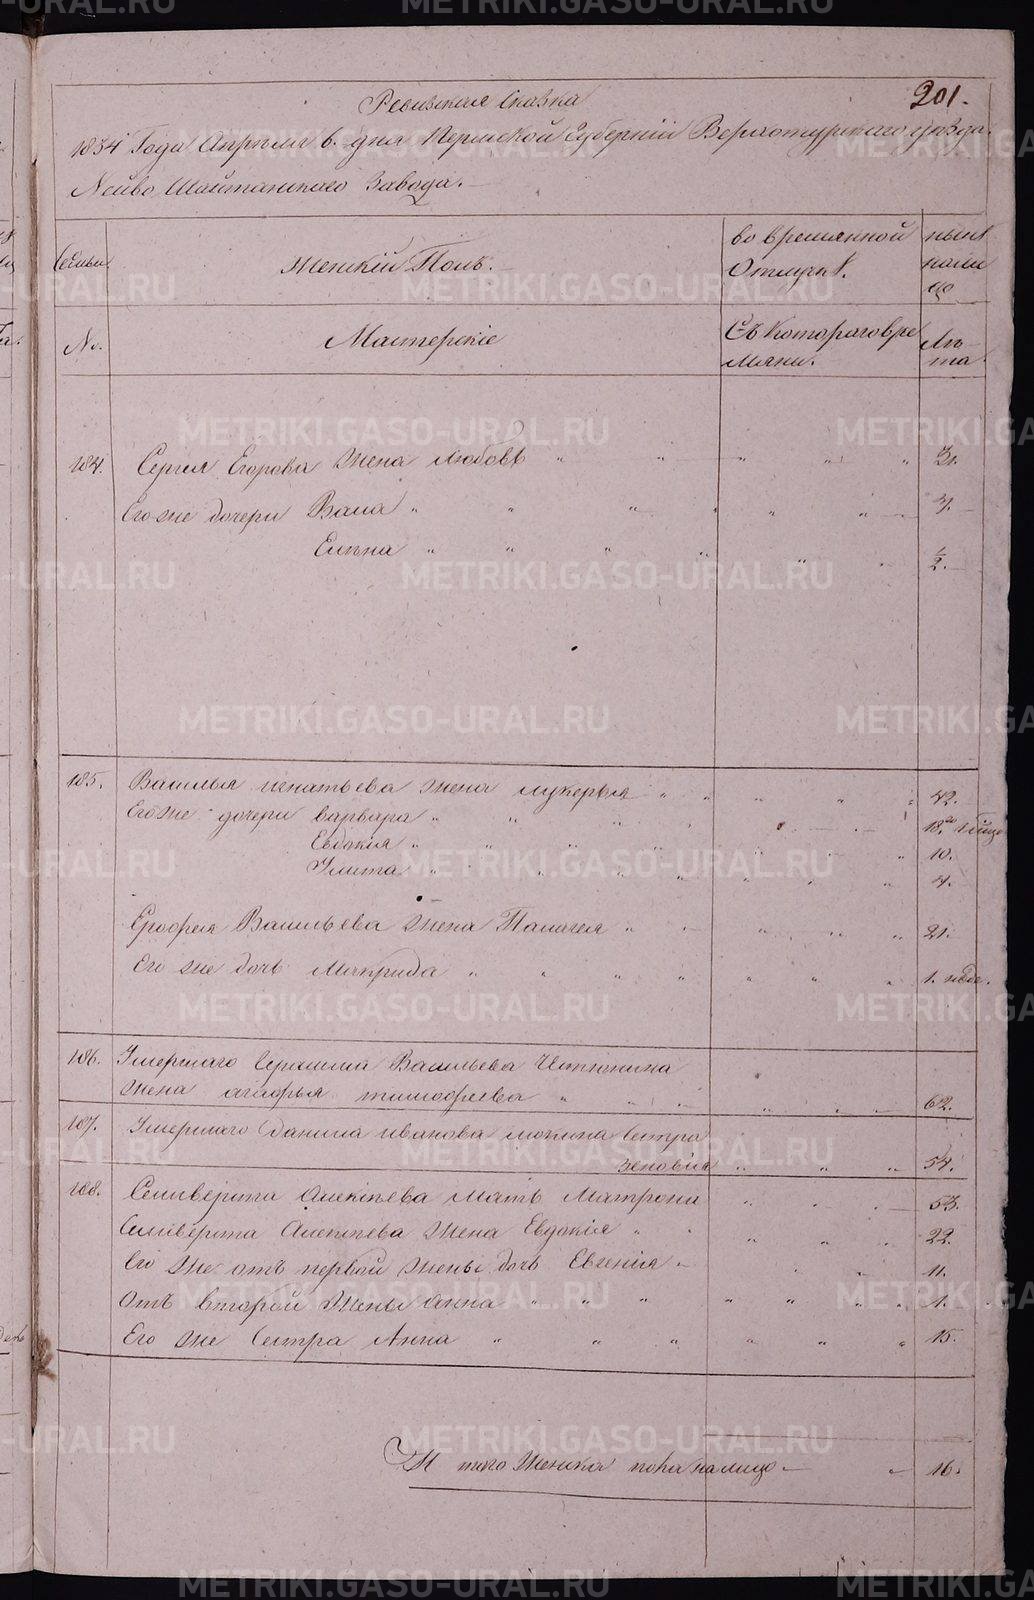 201.
Ревизская Сказка
1834 Года Апреля 6. дня Пермской Губернiи Верхотурскаго уѣзда.
Нейво Шайтанскаго Завода.
Семьи
Женскiй Полъ.
во временной Отлучкѣ.
нынѣ на лицо
№.
Мастерскiе
Съ котораго вре мяни.
Лѣ та
184. Сергея Егорова жена любовь 31.
Его же дочери Васа
Елена 1/2.
185. Василья игнатьева жена лукерья 42.
Его же дочери варвара 18.
Евдокия 10.
Улита 4.
Ерофея Васильева жена Палагея 21.
Его же дочь Макрида 1. неде.
186. Умершаго Герасима Васильева
жена агафья тимофеева 62.
187. Умершаго Данила иванова мокина Сестра
зеновiя 54.
188. Селиверста Алексеева мать Матрона 53.
Селиверста Алексеева жена Евдокiя 22.
Его же отъ первой жены дочь Евгенiя 11.
Отъ второй жены Анна 1.
Его же Сестра Анна 15.
И того женска пола на лицо 16.
METRIKI.GASO-URAL.RU